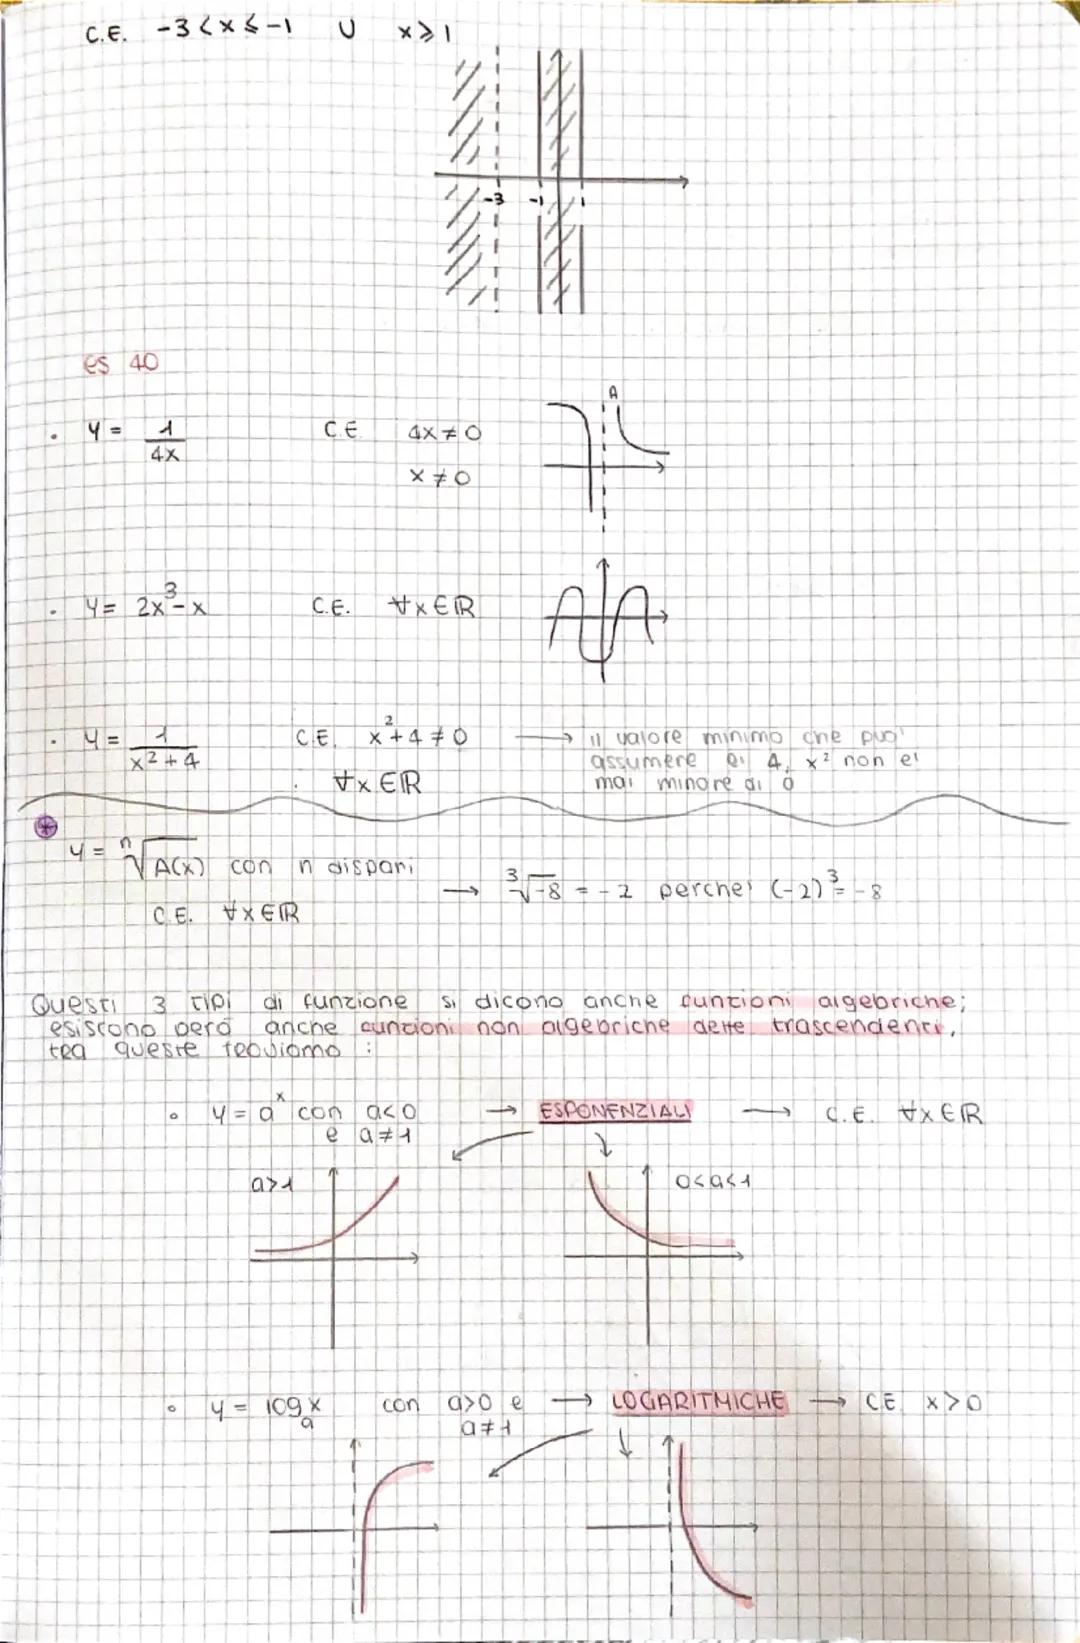 C.E. -3<x⩽-1 U x⩾1
-3 -1 1
es 40
• y = 1/4x C.E. 4x≠0
x≠0
• y = 2x³-x C.E. ∀x∈ℝ
• y = 1/x²+4 C.E. x²+4≠0 → il valore minimo che puo'
assumere e' 4, x² non e'
∀x∈ℝ mai minore di 0
y = ⁿ√A(x) con n dispari
→ ³√-8 = -2 perche' (-2)³= -8
C.E. ∀x∈ℝ
Questi 3 tipi di funzione si dicono anche funzioni algebriche;
esistono però anche funzioni non algebriche dette trascendenti,
tra queste troviamo :
• y = aˣ con a<0 → ESPONENZIALI → C.E. ∀x∈ℝ
e a≠1
a>1 0<a<1
• y = logₐx con a>0 e → LOGARITMICHE → C.E. x>0
a≠1